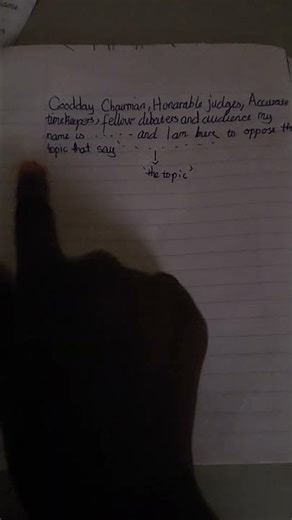 Goodday Chairman, Honarable judges, Accurate
timekeepers, fellow debaters and audience my
name is ...... and I am here to oppose the
topic that say ' ............ '
'the topic'